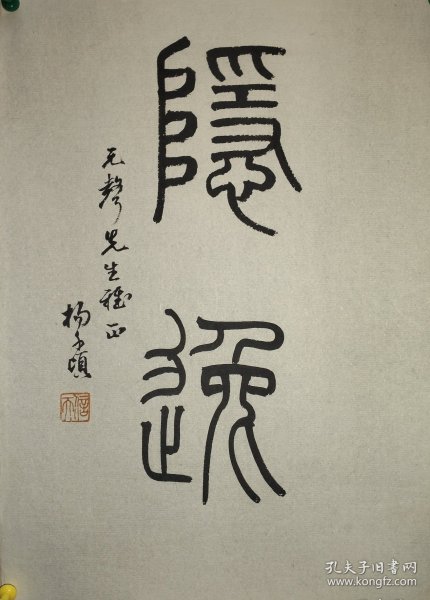 隱逸
元聲先生雅正
楊
孔夫子旧书网
www.kongfz.com